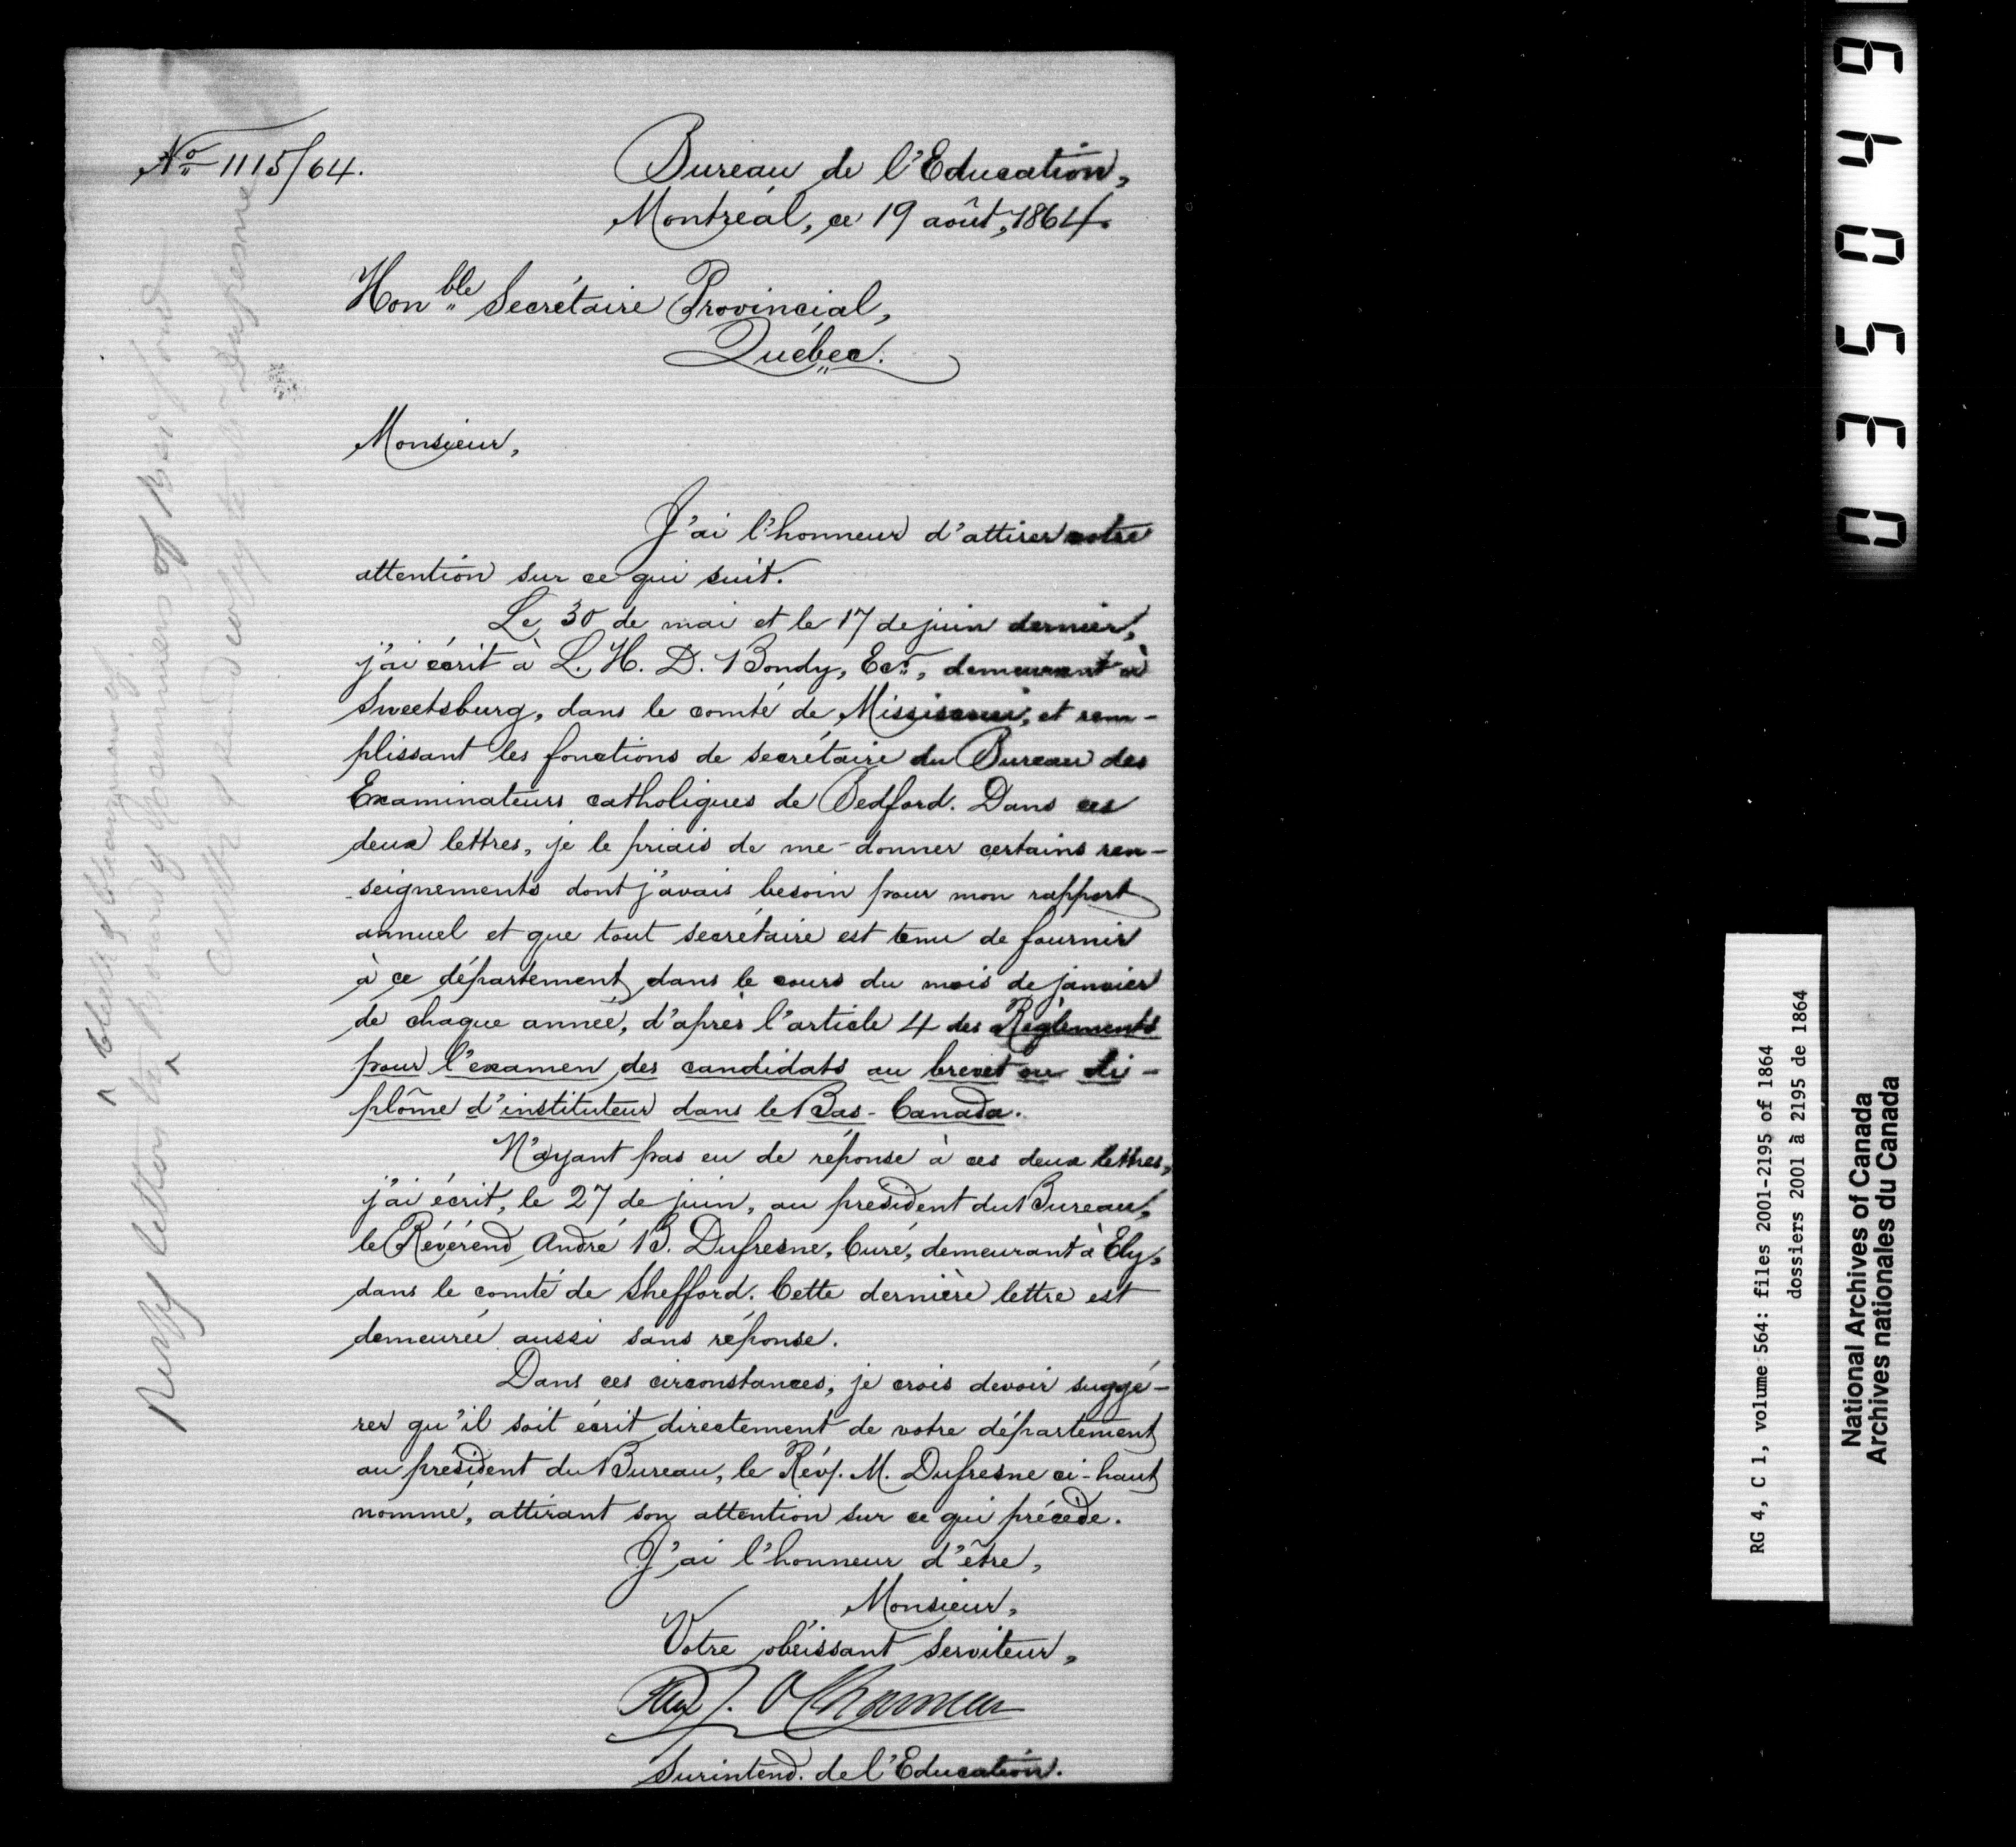 No 1115/64.
Bureau de l'Education,
Montréal, ce 19 août, 1864.
Honble Secrétaire Provincial,
Québec.
Monsieur,
J'ai l'honneur d'attirer votre
attention sur ce qui suit.
Le 30 de mai et le 17 de juin dernier,
j'ai écrit à L. H. D. Bondy, Ecr., demeurant à
Sweetsburg, dans le comté de Missiscoui, et rem-
plissant les fonctions de secrétaire du Bureau des
Examinateurs catholiques de Bedford. Dans ces
deux lettres, je le priais de me donner certains ren-
seignements dont j'avais besoin pour mon rapport
annuel et que tout secrétaire est tenu de fournir
à ce département dans le cours du mois de janvier
de chaque année, d'après l'article 4 des Règlements
pour l'examen des candidats au brevet ou di-
plôme d'instituteur dans le Bas-Canada.
N'ayant pas eu de réponse à ces deux lettres,
j'ai écrit, le 27 de juin, au président du Bureau,
le Révérend André B. Dufresne, Curé, demeurant à Ely,
dans le comté de Shefford. Cette dernière lettre est
demeurée aussi sans réponse.
Dans ces circonstances, je crois devoir suggé-
rer qu'il soit écrit directement de votre département
au président du Bureau, le Rév. M. Dufresne ci-haut
nommé, attirant son attention sur ce qui précède.
J'ai l'honneur d'être,
Monsieur,
Votre obéissant Serviteur,
Surintend. de l'Education.
letter to Board of Examiners of Bedford
send copy to Mr Dufresne
03504 9
RG 4, C 1, volume 564: files 2001-2195 of 1864
dossiers 2001 à 2195 de 1864
National Archives of Canada
Archives nationales du Canada